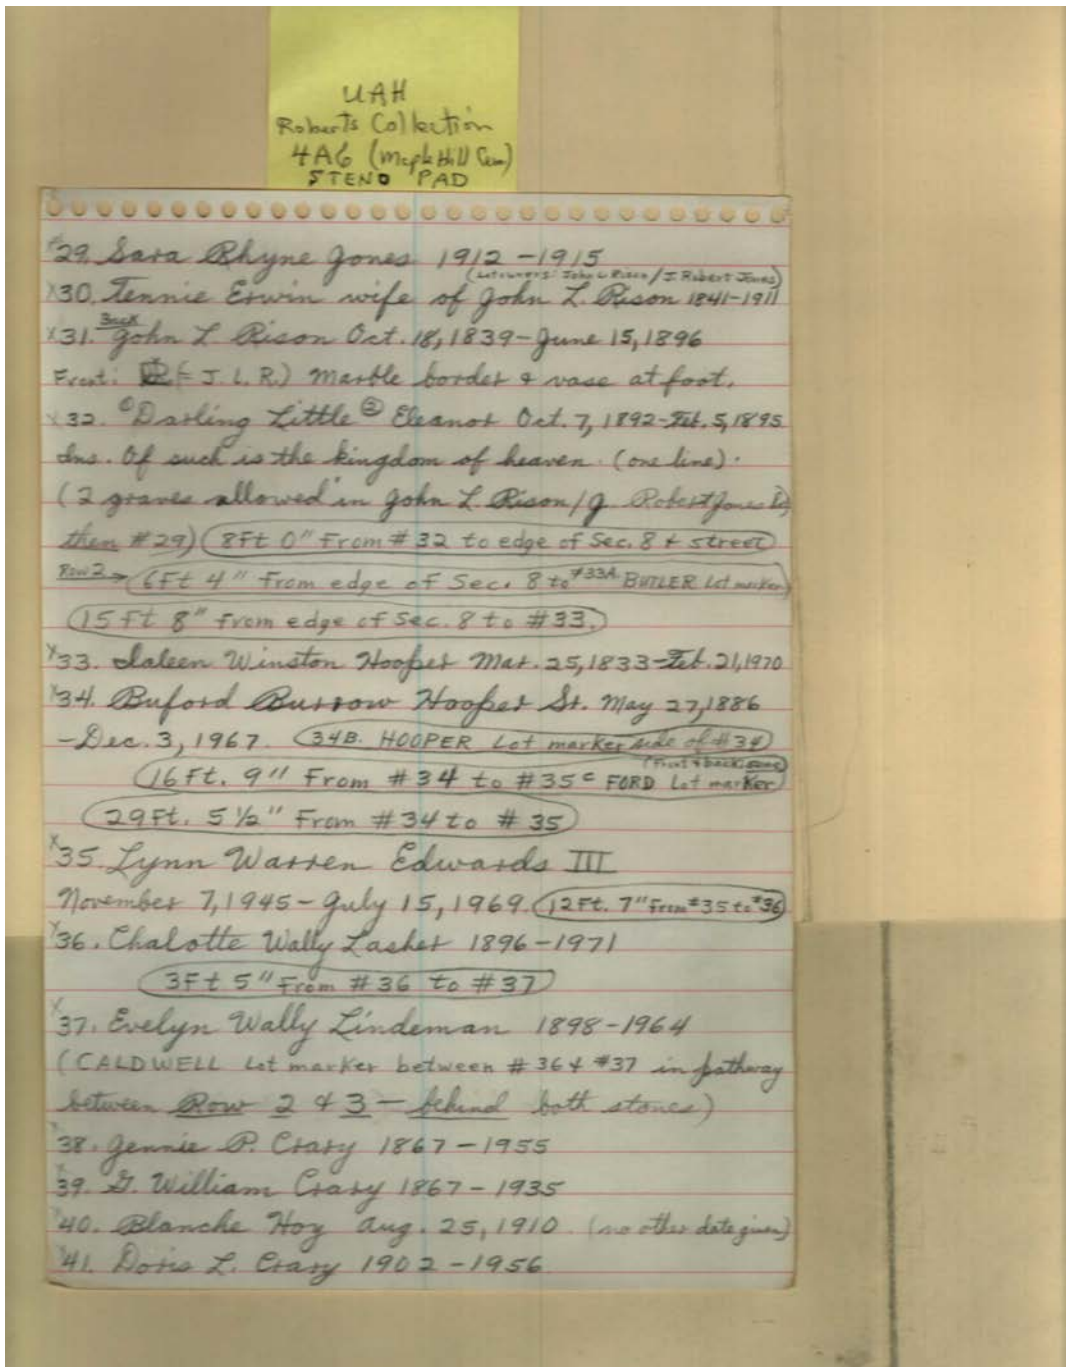 UAH
Roberts Collection
4A6 (Maple Hill Cem)
STENO PAD
x29. Sara Rhyne Jones 1912-1915
(Lot owners: John L Rison / J. Robert Jones)
x30. Tennie Erwin wife of John L. Rison 1841-1911
Back
x31. John L. Rison Oct. 18, 1839-June 15, 1896
Front: (= J. L. R.) Marble border & vase at foot.
x32. ① Darling Little ② Eleanor Oct. 7, 1892-Feb. 5, 1895
Ins. Of such is the kingdom of heaven. (one line).
(2 graves allowed in John L. Rison / J. Robert Jones
then #29) 8Ft 0" From #32 to edge of Sec. 8 & street
Row 2 → 6Ft 4" From edge of Sec. 8 to #33A. BUTLER Lot marker
15 Ft 8" From edge of Sec. 8 to #33.
x33. Ialeen Winston Hooper Mar. 25, 1833-Feb. 21, 1970
x34. Buford Burrow Hooper Sr. May 27, 1886
-Dec. 3, 1967. 34B. HOOPER Lot marker side of #34
(Front & back same)
16 Ft. 9" From #34 to #35c FORD Lot marker
29Ft. 5 1/2" From #34 to #35
x35. Lynn Warren Edwards III
November 7, 1945-July 15, 1969. 12Ft. 7" From #35 to #36
x36. Chalotte Wally Lasher 1896-1971
3Ft 5" From #36 to #37
x37. Evelyn Wally Lindeman 1898-1964
(CALDWELL Lot marker between #36 & #37 in pathway
between Row 2 & 3 - behind both stones)
x38. Jennie P. Crary 1867-1955
x39. G. William Crary 1867-1935
x40. Blanche Hoy Aug. 25, 1910. (no other date given)
x41. Doris L. Crary 1902-1956